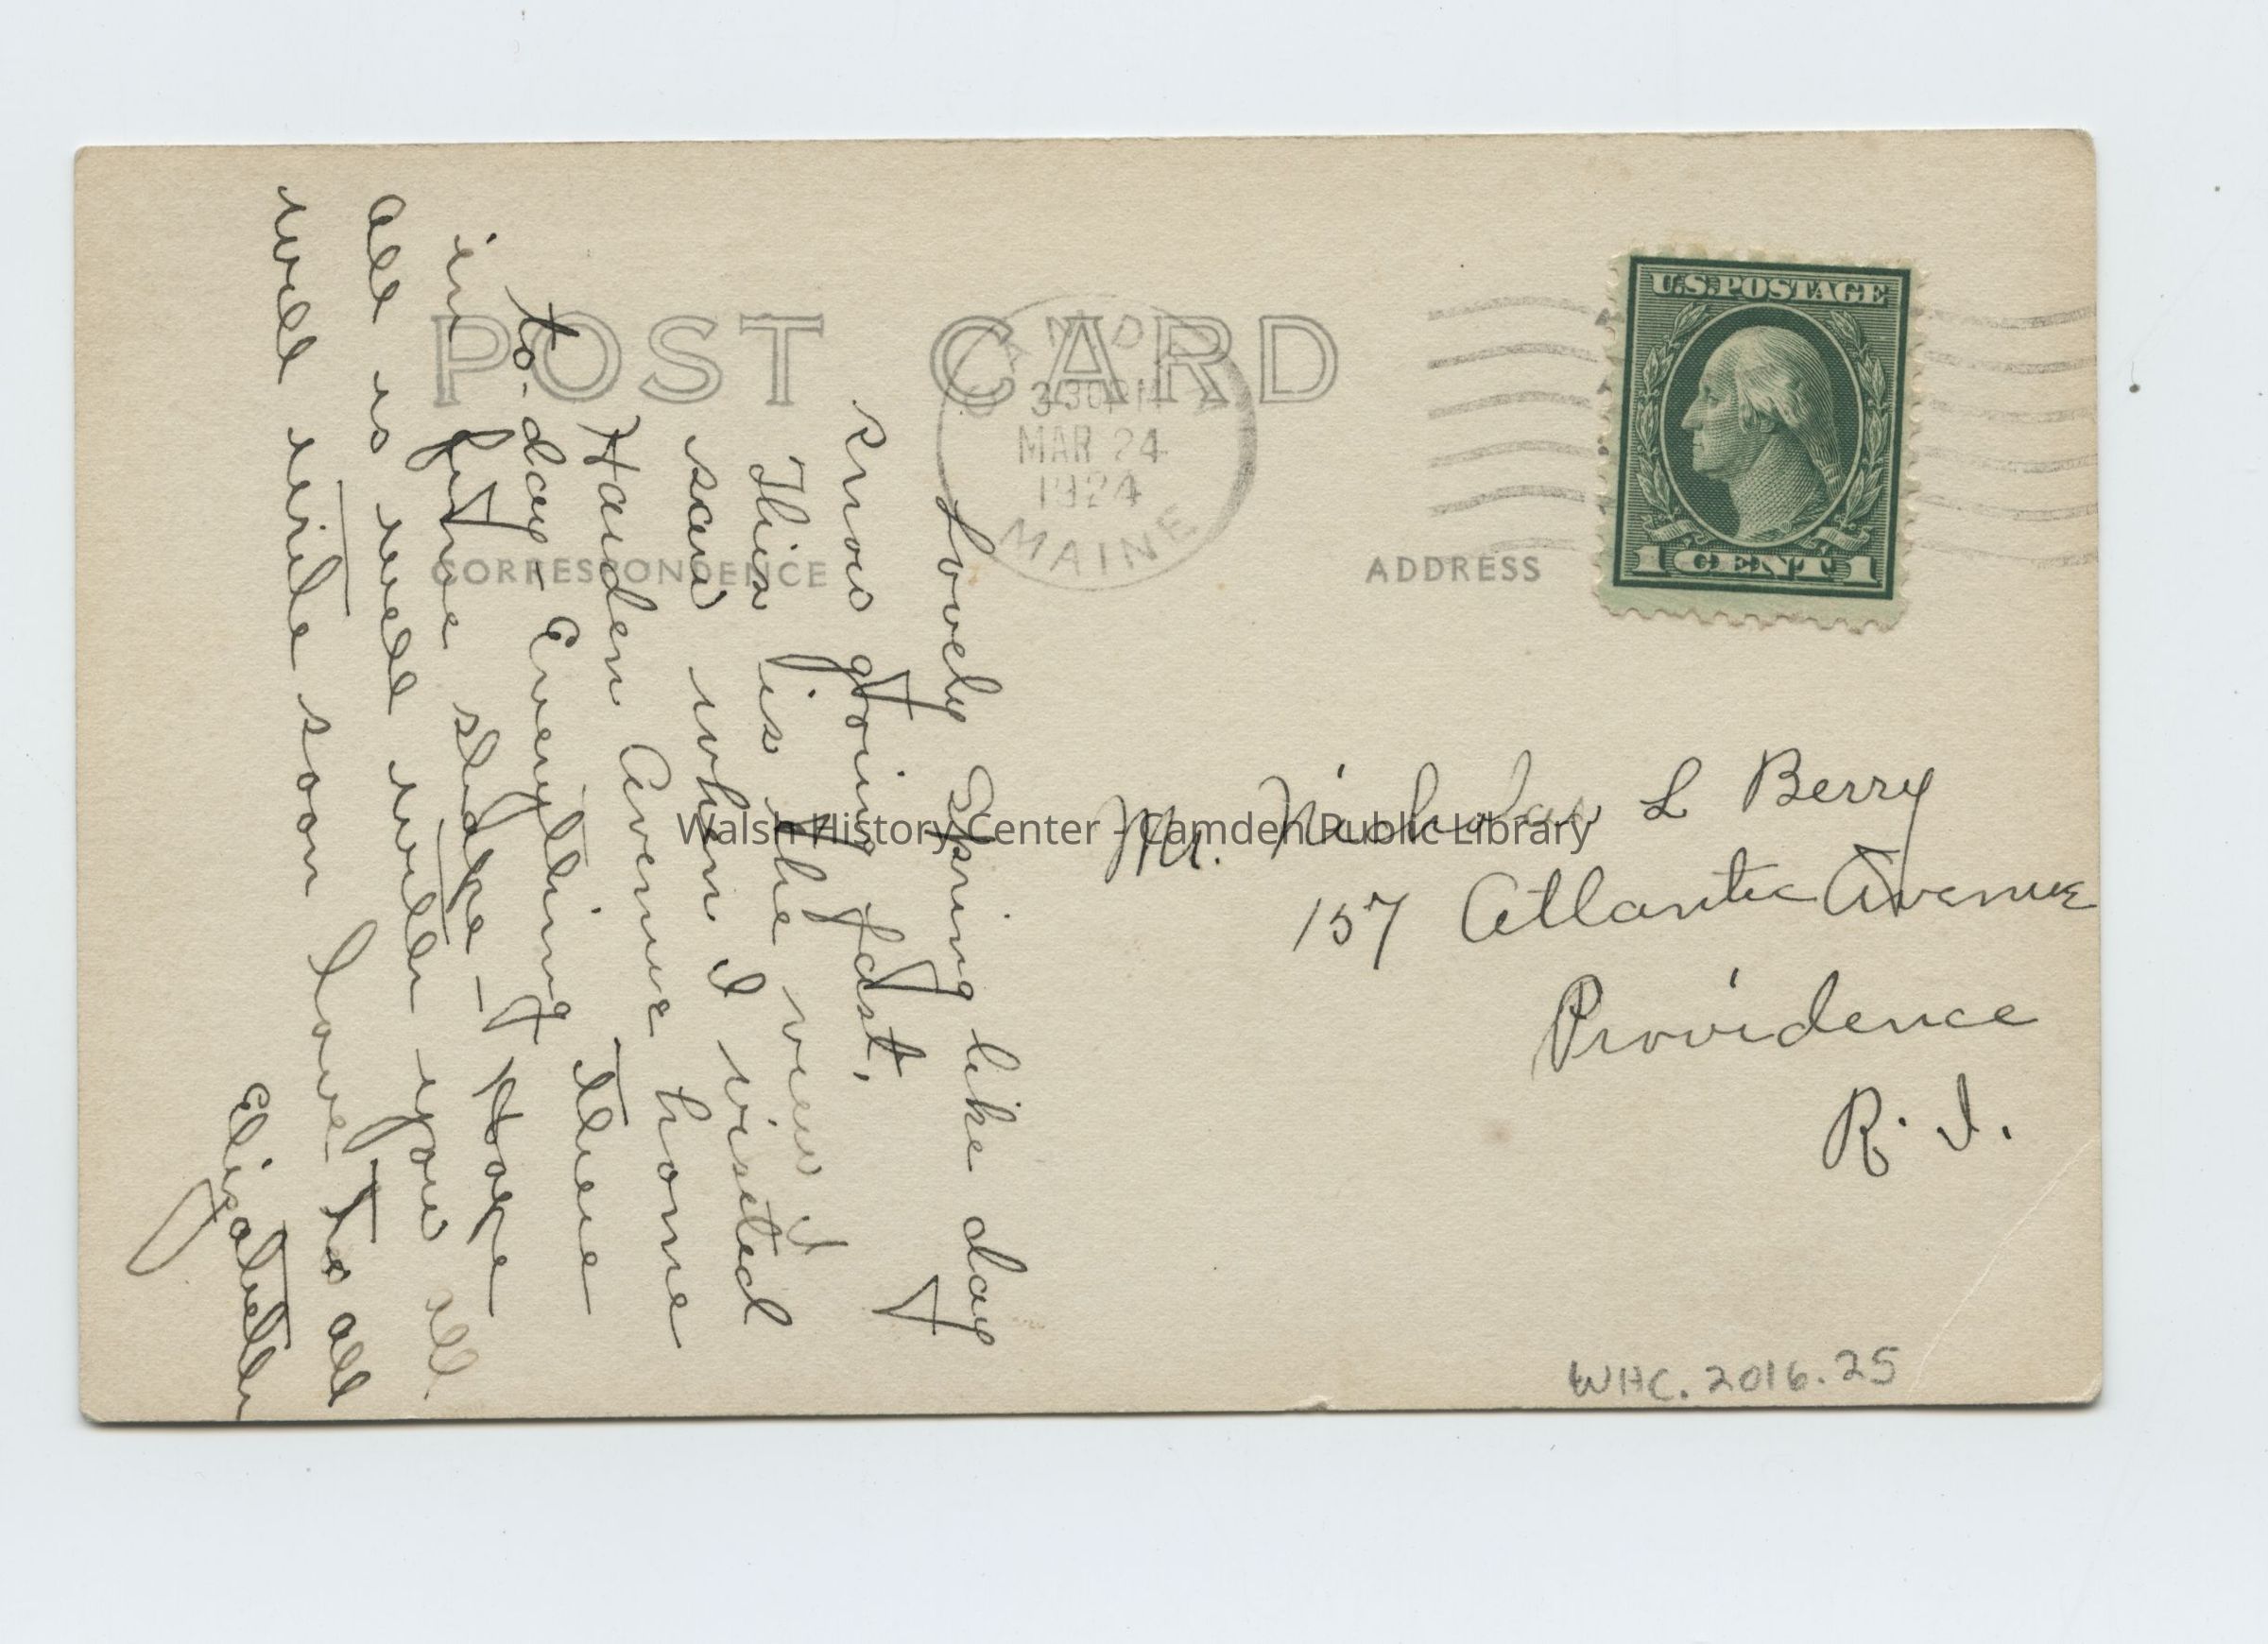 POST CARD
CAMDEN
3 30 PM
MAR 24
1924
MAINE
U.S. POSTAGE
1 CENT 1
CORRESPONDENCE
ADDRESS
Lovely Spring like day
snow going fast.
This is the view I
saw when I visited
Harden Avenue home
to-day - Everything there
in fine shape - Hope
all is well with you all
will write soon Love to all
Elizabeth
Mr. Nicholas L Berry
157 Atlantic Avenue
Providence
R. I.
WHC. 2016.25
Walsh History Center - Camden Public Library